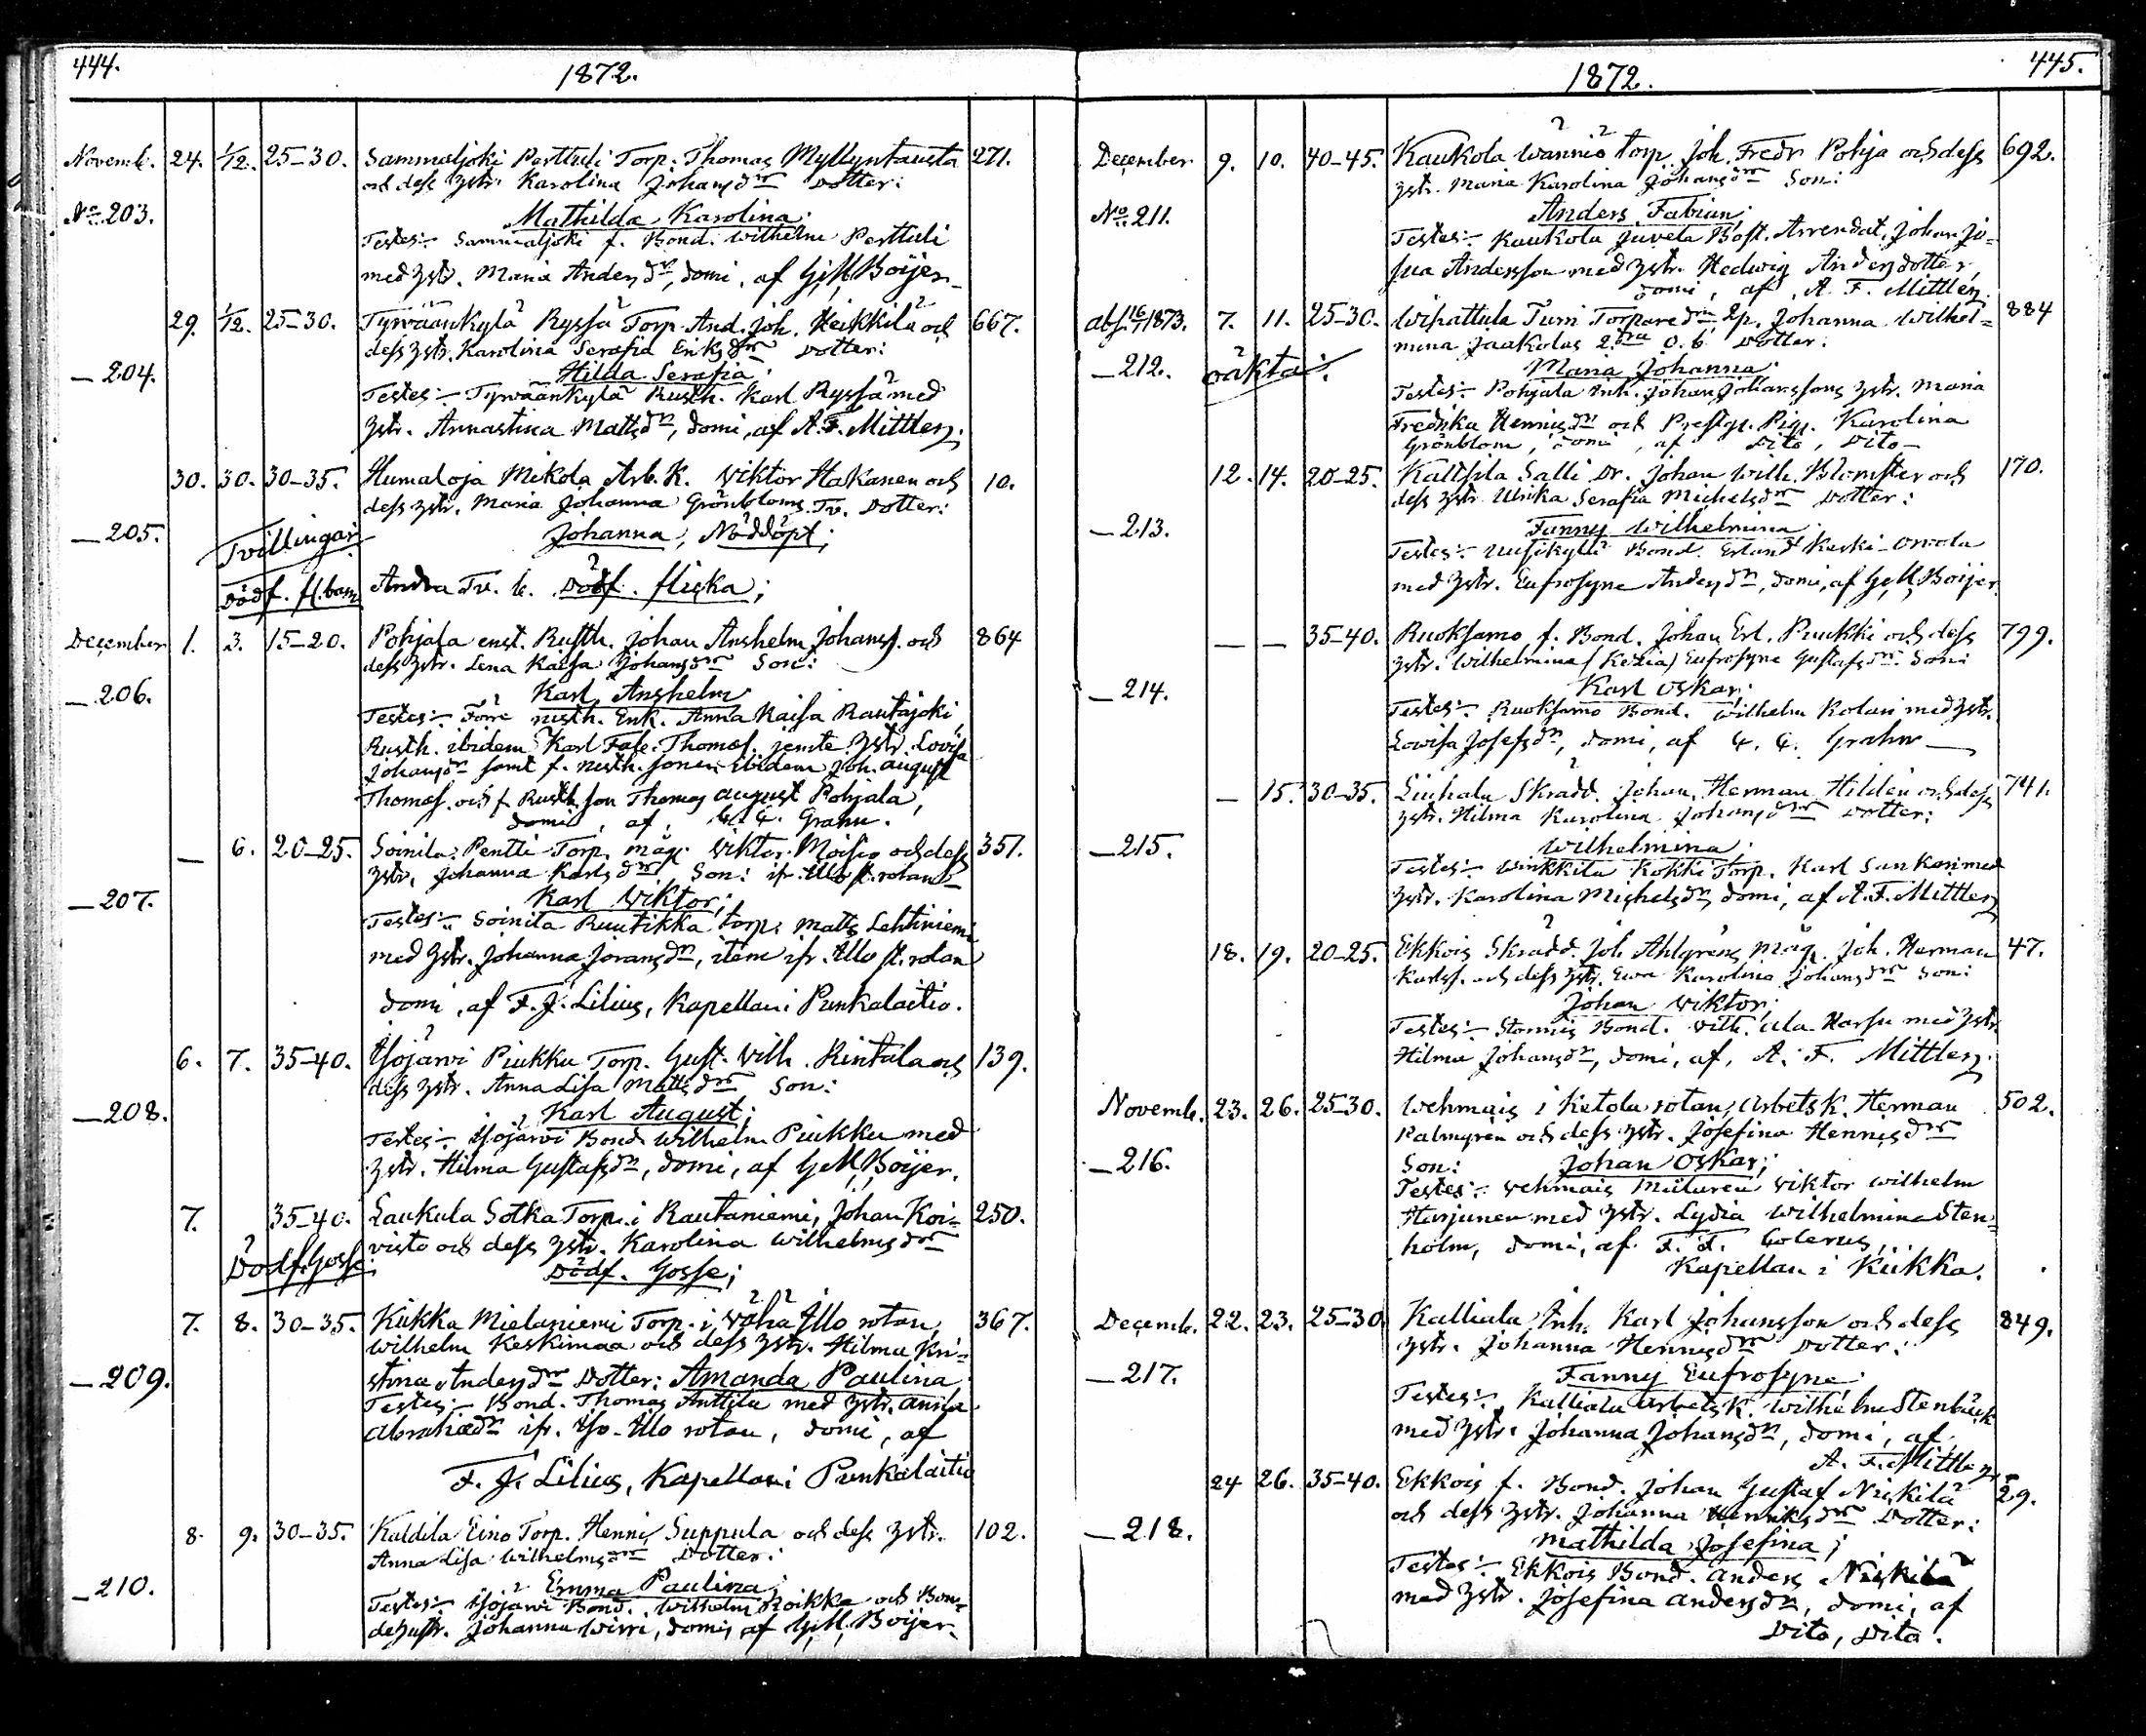 444.
1872.
Novemb. 24. 1/12. 25-30. Sammaljoki Perttuli Torp. Thomas Myllyntausta 271.
och dess hstr. Karolina Johansdr Dotter:
No 203. Mathilda Karolina:
Testes: Sammaljoki f. Bond. Wilhelm Perttuli
med hstr. Maria Andersdr, domi, af G. M. Boijer
29. 1/12. 25-30. Tyrwäänkylä Ryssä Torp. And. Joh. Heikkilä och 667.
dess hstr. Karolina Serafia Eriksdr Dotter:
— 204. Hilda Serafia;
Testes: Tyrwäänkylä Rusth. Karl Ryssä med
hstr. Annastina Mattsdr, domi, af A. F. Mittler.
30. 30. 30-35. Humaloja Mikola Arb. K. Viktor Hakanen och 10.
dess hstr. Maria Johanna Grönbloms Tv. Dotter:
— 205. Tvillingar: Johanna, Nöddöpt;
Dödf. fl. barn Andra Tv. b. Dödf. flicka;
December 1. 3. 15-20. Pohjala enst. Rusth. Johan Anshelm Johanss. och 864
dess hstr. Lena Kaisa Johansdr Son:
— 206. Karl Anshelm
Testes: Förre rusth. Enk. Anna Kaisa Rautajoki,
Rusth. ibidem Karl Fale. Thomas. jemte hstr. Lovisa
Johansdr samt f. rusth. sonen ibidem Joh. August
Thomass. och f. Rusth. son Thomas August Pohjala,
domi, af, Grahn.
— 6. 20-25. Soinila Pentti Torp. måg Viktor Moisio och dess 351.
hstr. Johanna Karlsdr Son: ifr. Illo st. rotan
— 207. Karl Viktor;
Testes: Soinila Ruutikka torp. Matts Lehtiniemi
med hstr. Johanna Joransdr, item ifr. Illo st. rotan
domi, af F. J. Lilius, Kapellan i Punkalaitio.
6. 7. 35-40. Isojärvi Piukku Torp. Gust. Wilh. Rintala och 139.
dess hstr. Anna Lisa Mattsdr Son:
— 208. Karl August;
Testes: Isojärvi Bond. Wilhelm Piukku med
hstr. Hilma Gustafsdr, domi, af G. M. Boijer.
7. 35-40. Laukula Sotka Torp. i Rautaniemi, Johan Koi= 250.
visto och dess hstr. Karolina Wilhelmsdr
Dödf. Gosse: Dödf. Gosse;
7. 8. 30-35. Kiikka Mielaniemi Torp. i Wähä Illo rotan, 367.
Wilhelm Keskimaa och dess hstr. Hilma Kri=
— 209. stina Andersdr Dotter: Amanda Paulina
Testes: Bond. Thomas Anttila med hstr. Anna
Abrahadr ifr. Iso-Illo rotan, domi, af
F. J. Lilius, Kapellan i Punkalaitio
8. 9. 30-35. Kaldila Eino Torp. Henric Suppula och dess hstr. 102.
Anna Lisa Wilhelmsdr Dotter:
— 210. Emma Paulina;
Testes: Isojärvi Bond. Wilhelm Roikka och Bon=
dehustr. Johanna Wirri, domi, af G. M. Boijer.
445.
1872.
December 9. 10. 40-45. Kaukola Wänniö Torp. Joh. Fredr. Pohja och dess 692.
hstr. Maria Karolina Johansdr Son:
No 211. Anders Fabian;
Testes: Kaukola Juvela Bost. Arrendat. Johan Jo=
sua Andersson med hstr. Hedwig Andersdotter,
domi, af, A. F. Mittler.
abs. 16/7 1873. 7. 11. 25-30. Wihattula Turri Torparedr 2p. Johanna Wilhel= 884
mina Jaakolas 2dra o. b. Dotter:
— 212. oäkta: Maria Johanna;
Testes: Pohjala Inh. Johan Johanssons hstr. Maria
Fredrika Henricsdr och Prestg. Pig. Karolina
Grönblom, domi, af Dito, Dito
12. 14. 20-25. Kaltsila Salli Dr. Johan Wilh. Blomster och 170.
dess hstr. Ulrika Serafia Michelsdr Dotter:
— 213. Fanny Wilhelmina
Testes: Uusikylä Bond. Erland Keski-Orvola
med hstr. Eufrosyne Andersdr, domi, af G. M. Boijer.
— — 35-40. Ruoksamo f. Bond. Johan Erl. Puukki och dess 799.
hstr. Wilhelmina (Kezia) Eufrosyne Gustafsdr Son:
— 214. Karl Oskar;
Testes: Ruoksamo Bond. Wilhelm Kolari med hstr.
Lowisa Josefsdr, domi, af Grahn —
— 15. 30-35. Liuhala Skrädd. Johan Herman Hildén och dess 741.
hstr. Hilma Karolina Johansdr Dotter:
— 215. Wilhelmina;
Testes: Winkkila Kokki Torp. Karl Sankari med
hstr. Karolina Michelsdr, domi, af A. F. Mittler
18. 19. 20-25. Ekkois Skrädd. Joh. Ahlgréns måg Joh. Herman 47.
Karlss. och dess hstr. Ewa Karolina Johansdr Son:
Johan Viktor;
Testes: Stormis Bond. Wilh. Ala Harsu med hstr.
Hilma Johansdr, domi, af, A. F. Mittler.
Novemb. 23. 26. 25-30. Wehmais i Ketola rotan, Arbets K. Herman 502.
Palmgren och dess hstr. Josefina Henricsdr
— 216. Son: Johan Oskar;
Testes: Wehmais Muluren Viktor Wilhelm
Harjunen med hstr. Lydia Wilhelmina Sten=
holm, domi, af. F. F. Colerus,
Kapellan i Kiikka.
Decemb. 22. 23. 25-30 Kalliala Inh. Karl Johansson och dess 849.
hstr. Johanna Henricsdr Dotter:
— 217. Fanny Eufrosyne;
Testes: Kalliala Arbets K. Wilhelm Stenbäck
med hstr. Johanna Johansdr, domi, af
A. F. Mittler,
24 26. 35-40. Ekkois f. Bond. Johan Gustaf Niskilä 29.
och dess hstr. Johanna Henriksdr Dotter:
— 218. Mathilda Josefina;
Testes: Ekkois Bond. Anders Niskilä
med hstr. Josefina Andersdr, domi, af
Dito, Dito.